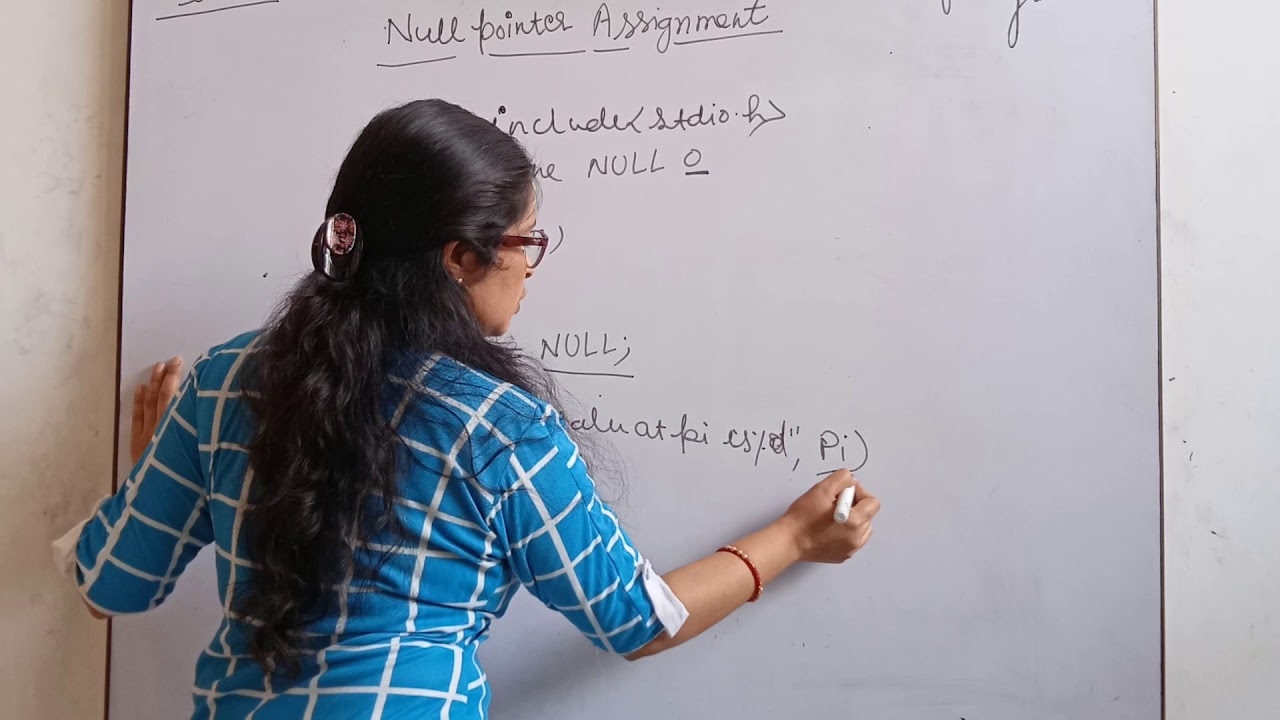 Null pointer Assignment
include<stdio.h>
NULL 0
)
= NULL;
at pi is %d", Pi)